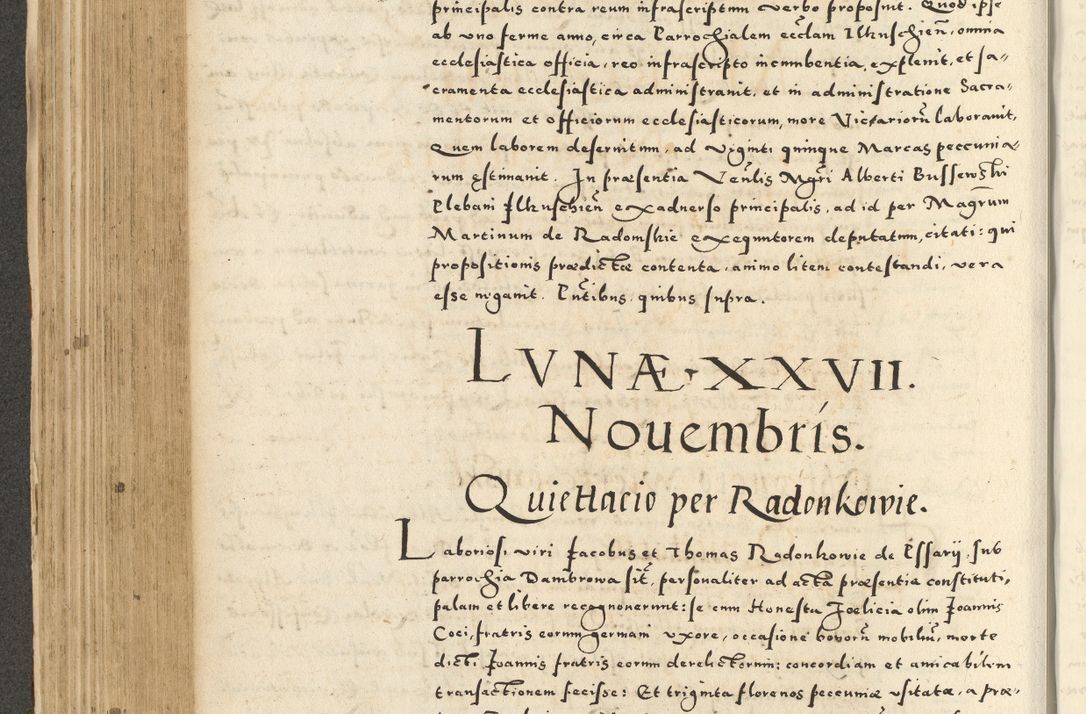 principalis contra reum infrascriptum verbo proposuit. Quod ipse
ab vno ferme anno, circa Parrochialem eccłam Ilkuschień, omnia
ecclesiastica officia, reo infrascripto incumbentia, expleuit, et sa-
cramenta ecclesiastica administrauit, et in administratione Sacra-
mentorum et officiorum ecclesiasticorum, more Vicariorū laborauit,
Quem laborem deseruitum, ad viginti quinque Marcas peccunia
rum ęstimauit. In præsentia Venlis Mgri Alberti Bussewski
Plebani Ilkuschień ex aduerso principalis, ad id per Magrum
Martinum de Radomskie exequutorem deputatum, citati: qui
propositionis prædictæ contenta, animo litem contestandi, vera
esse negauit. Pntibus, quibus supra.
LVNÆ XXVII.
Nouembris.
Quiettacio per Radonkowie.
Laboriosi viri Jacobus et Thomas Radonkowie de Essarÿ, sub
parrochia Dambrowa sit, personaliter ad acta præsentia constituti,
palam et libere recognouerunt: se cum Honesta Joelicia olim Joannis
Coci, fratris eorum germani vxore, occasione bonorū mobiliū, morte
dicti Joannis fratris eorum derelictorum: concordiam et amicabilem
transactionem fecisse: Et triginta florenos peccuniæ vsitatæ, a præ-